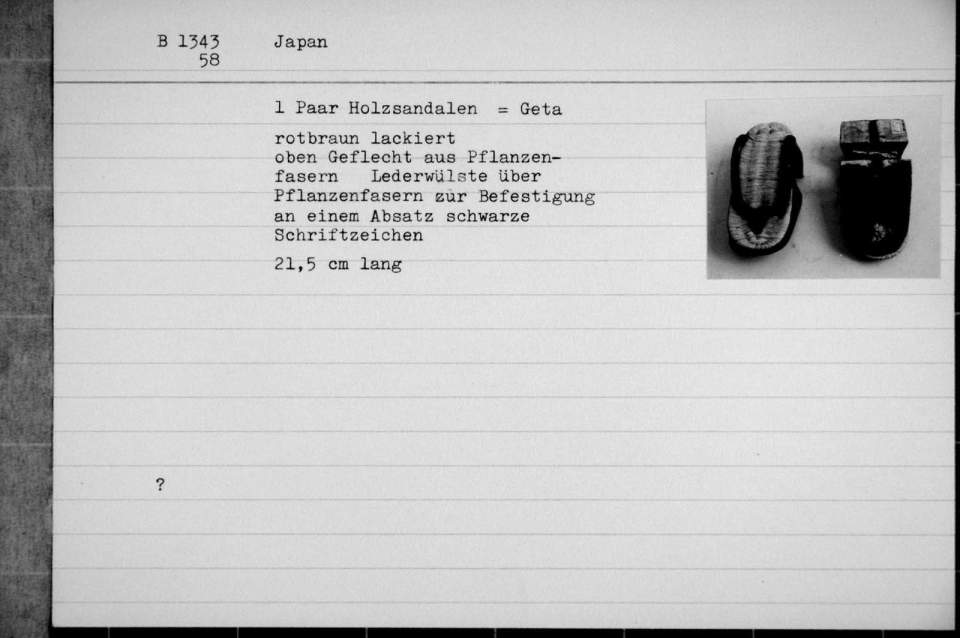 B 1343 Japan
58
1 Paar Holzsandalen = Geta
rotbraun lackiert
oben Geflecht aus Pflanzen-
fasern Lederwülste über
Pflanzenfasern zur Befestigung
an einem Absatz schwarze
Schriftzeichen
21,5 cm lang
?